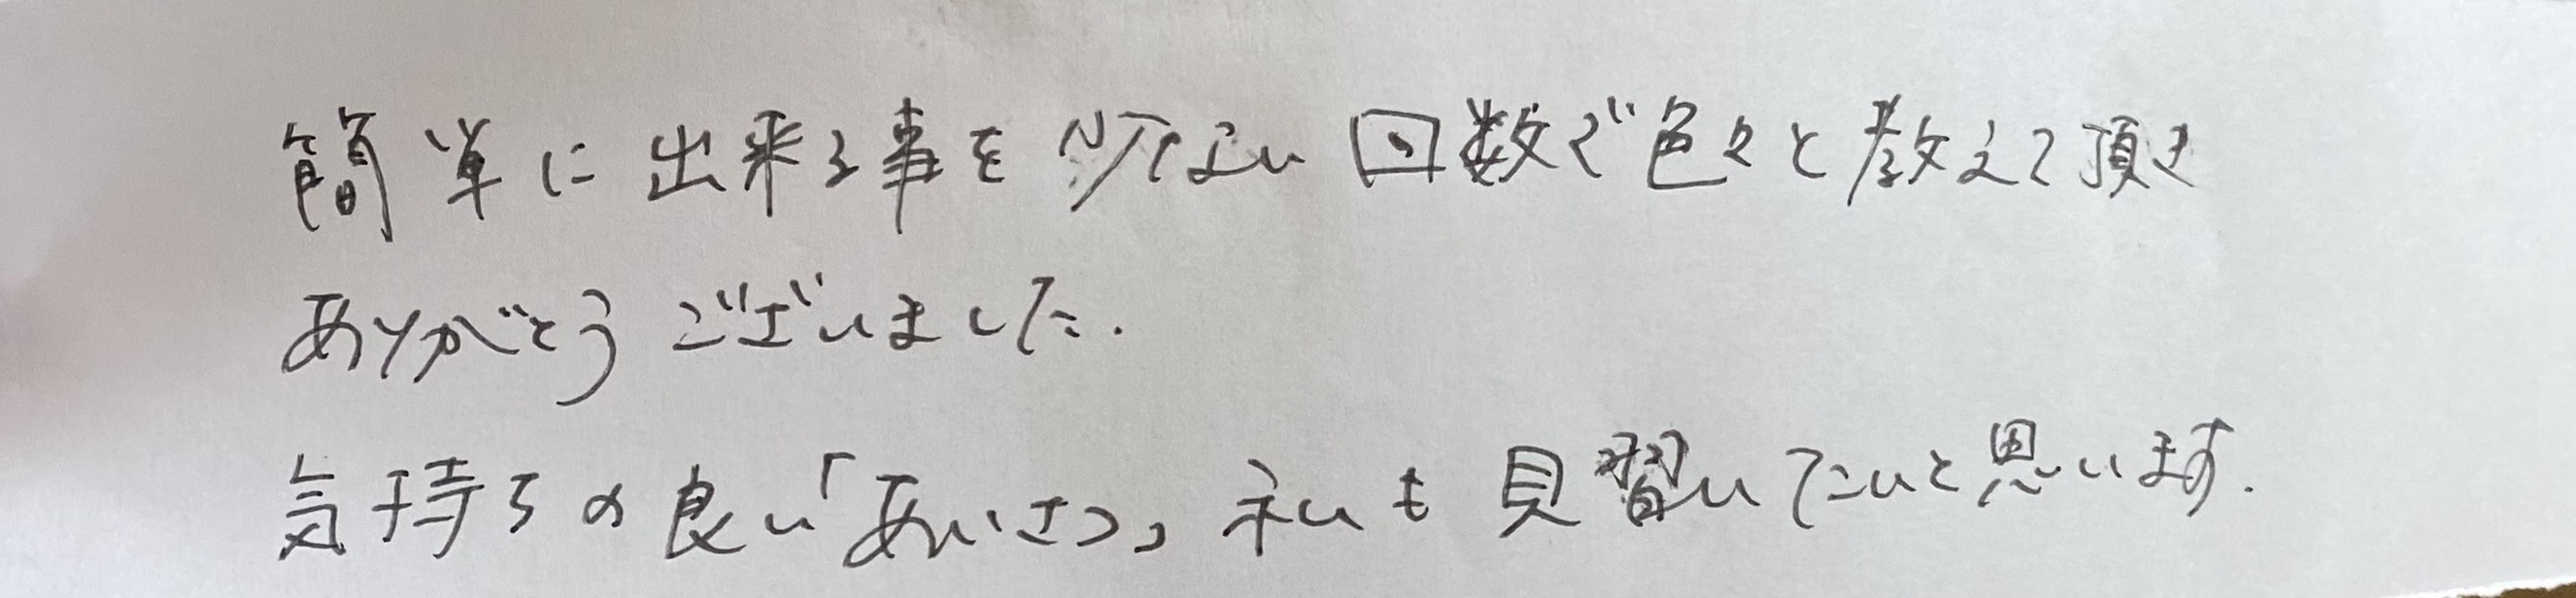 簡単に出来る事を少ない回数で色々と教えて頂き
ありがとうございました.
気持ちの良い「あいさつ」私も見習いたいと思います.